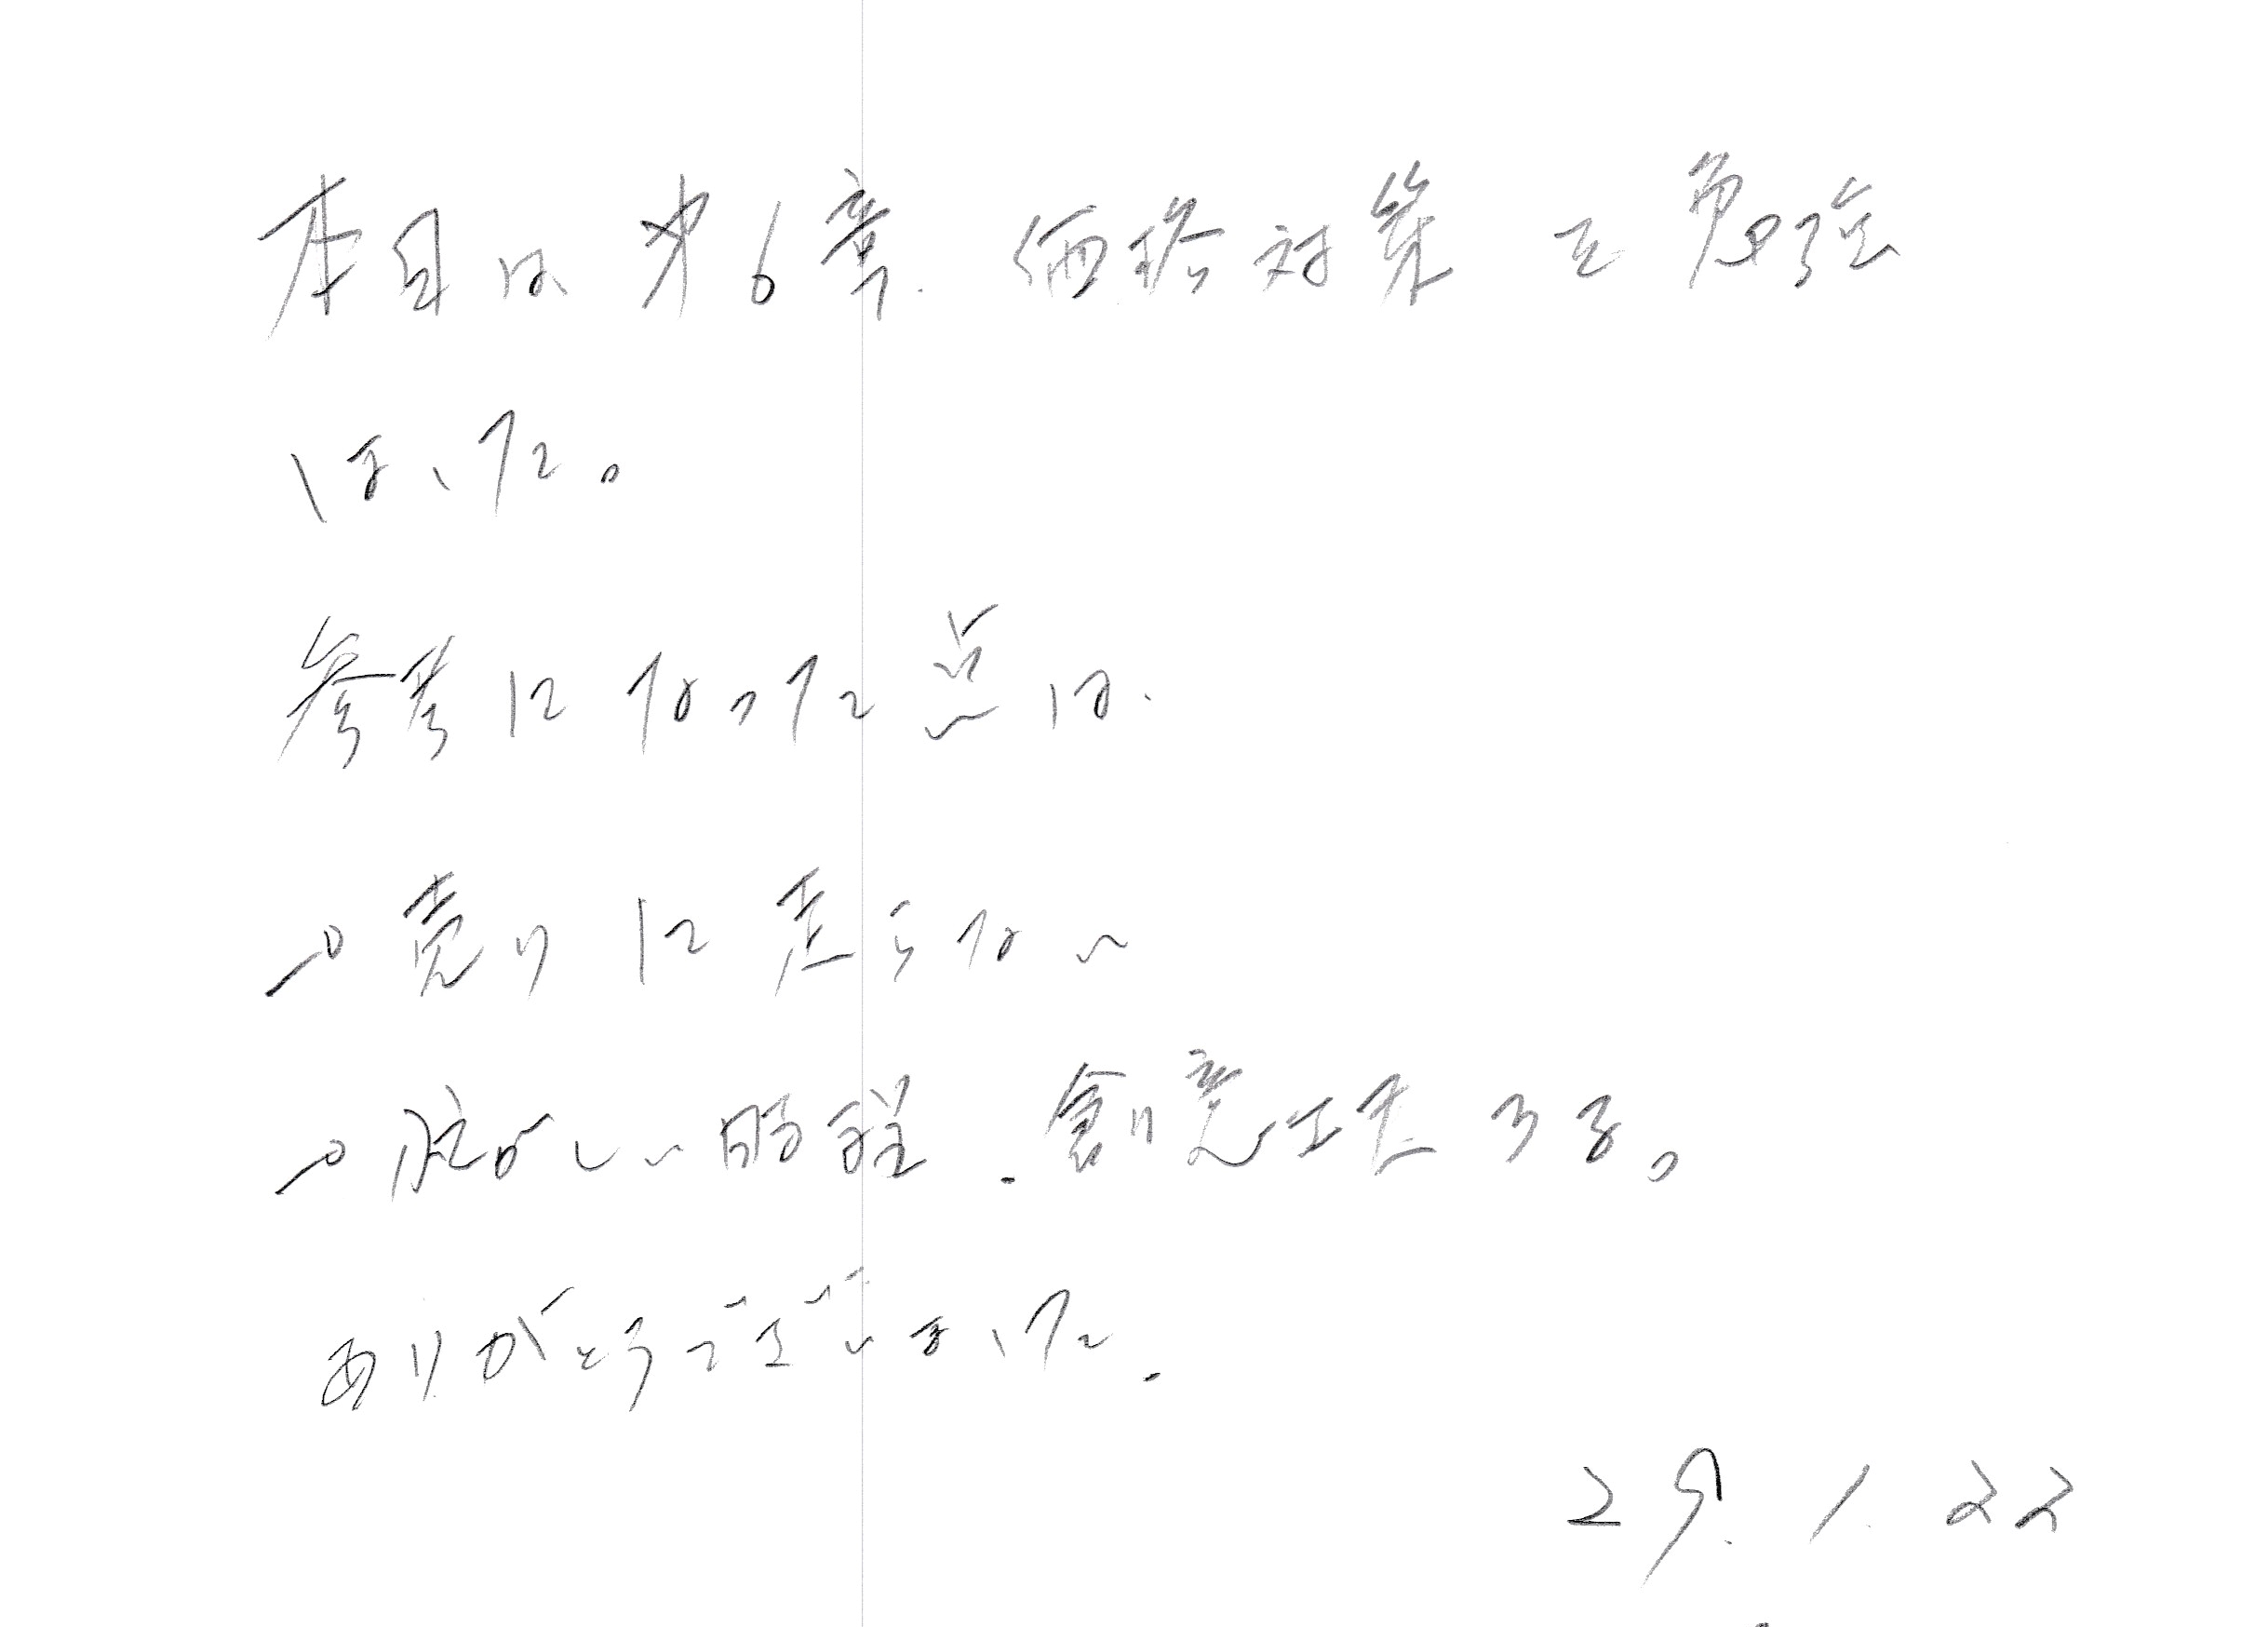 本日は第6章.価格対策を勉強
しました。
参考になった点は.
→売りに走らない
→忙がしい時程.創意工夫する。
ありがとうございました.
29.1.22